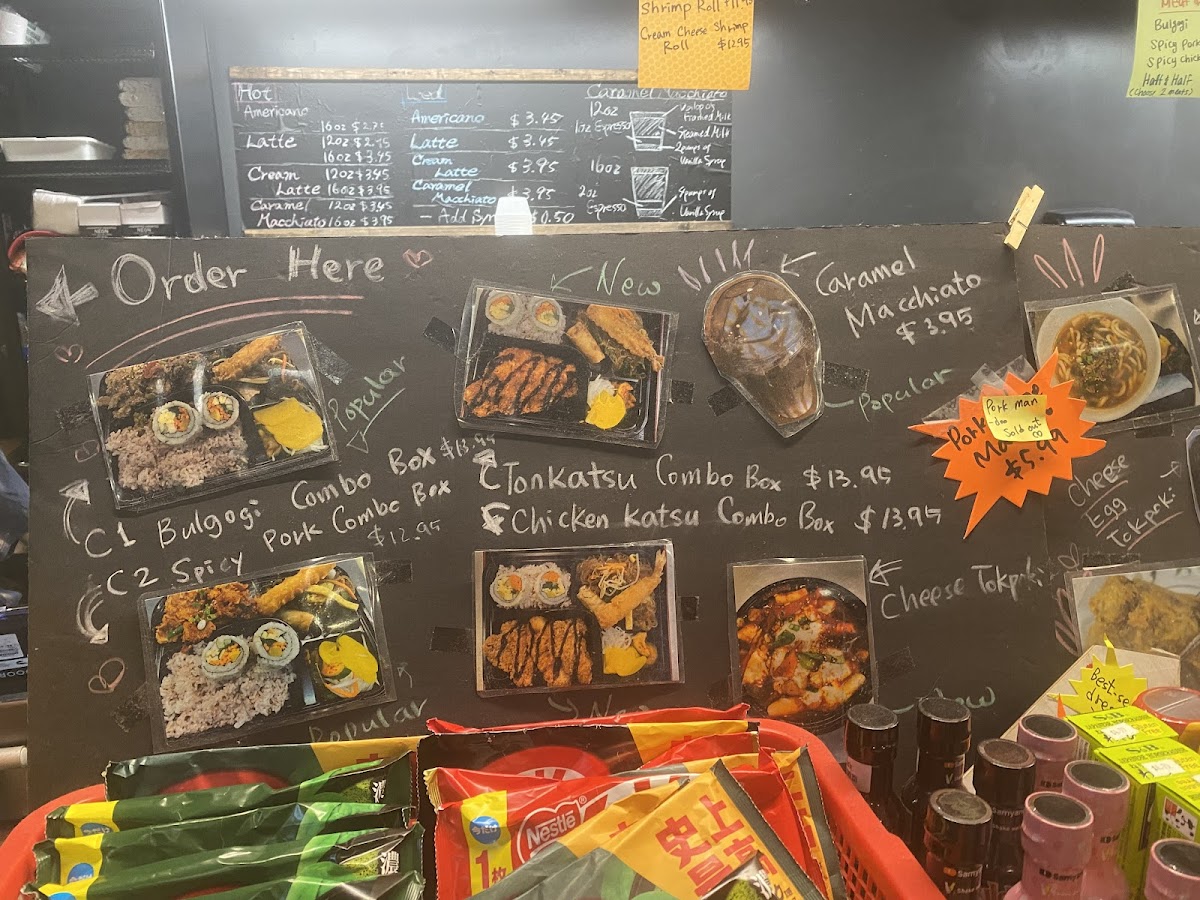 Shrimp Roll
Cream Cheese Shrimp
Roll $12.95
Bulgogi
Spicy Pork
Spicy Chick
Half & Half
(Choose 2 meats)
Hot
Americano
16oz $2.75
Latte 12oz $2.95
16oz $3.45
Cream 12oz $3.45
Latte 16oz $3.95
Caramel 12oz $3.45
Macchiato 16oz $3.95
Iced
Americano $3.45
Latte $3.45
Cream
Latte $3.95
Caramel
Macchiato $3.95
— Add $0.50
Caramel Macchiato
12oz
1oz Espresso
Frothed Milk
Steamed Milk
2pumps of
Vanilla Syrup
16oz
2oz
Espresso
4pumps of
Vanilla Syrup
Order Here
New
Caramel
Macchiato
$3.95
Popular
Popular
Pork man
-doo
Sold out
$5.99
C1 Bulgogi Combo Box $13.95
C2 Spicy Pork Combo Box
$12.95
Tonkatsu Combo Box $13.95
Chicken Katsu Combo Box $13.95
Cheese
Egg
Tokpoki
Cheese Tokpoki
Popular
New
best-se
Nestlé
今だけ
1枚
史上
最高
濃
濃
S&B
Samyang